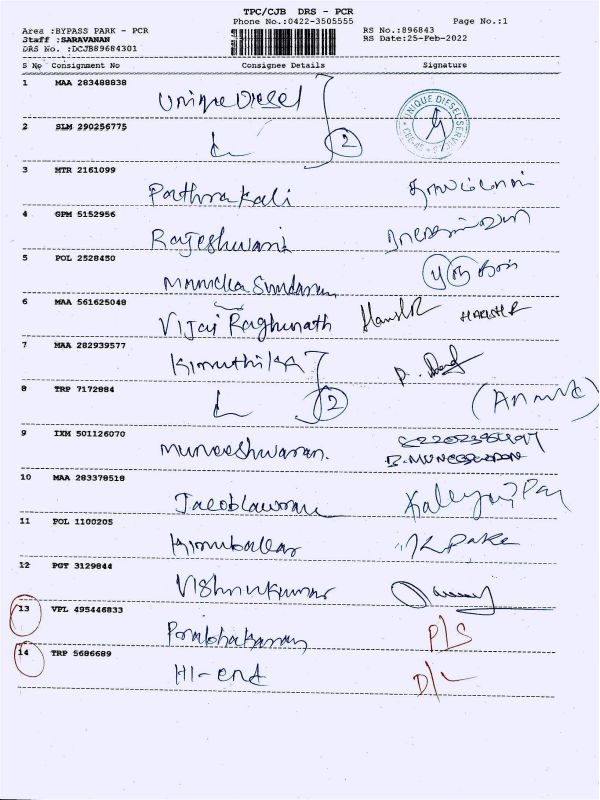 TPC/CJB DRS - PCR
Phone No.:0422-3505555
Page No.:1
Area :BYPASS PARK - PCR
RS No.:896843
Staff :SARAVANAN
RS Date:25-Feb-2022
DRS No. :DCJB89684301
S No Consignment No Consignee Details Signature
1 MAA 283488838 Unique Diesel
UNIQUE DIESEL SERVICE
2 SLM 290256775 2
3 MTR 2161099 Pathrakali
4 GPM 5152956 Rajeshwari
5 POL 2528450 Manicka Sundaram
6 MAA 561625048 Vijai Raghunath HARISH R
7 MAA 282939577 Kiruthika
8 TRP 7172884 2
9 IXM 501126070 Muneeshwaran.
10 MAA 283378518
11 POL 1100205
12 PGT 3129844 Vishnukumar
13 VPL 495446833 Prabhakaran P/S
14 TRP 5686689 Hi-end D/L